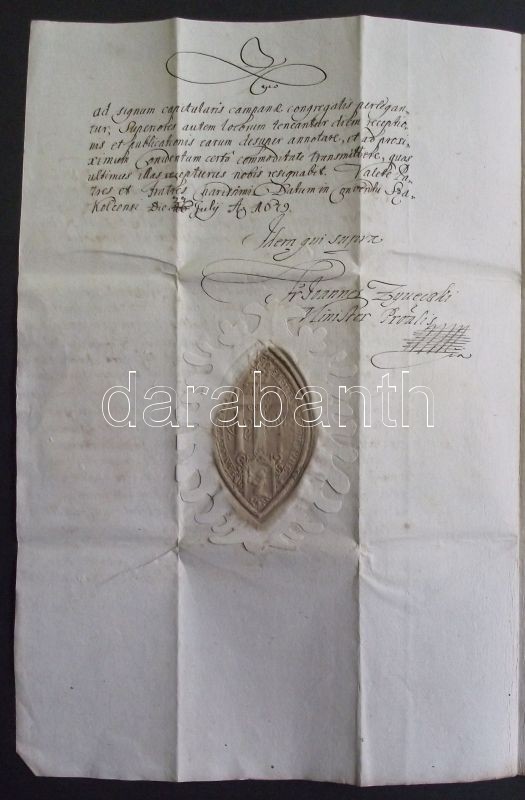 ad signum capitularis campanæ congregatis perlegan-
tur, Superiores autem locorum teneantur diem receptio-
nis et publicationis earum desuper annotare, et ad proxi-
ximum Conventum certa commoditate transmittere, quas
ultimus illas nobis resignabit. Valete Pa-
tres et Fratres Charissimi Datum in Conventu Sza-
kolcensi Die July A 1629
Idem qui supra
Fr Joannes
Minister Provlis
darabanth